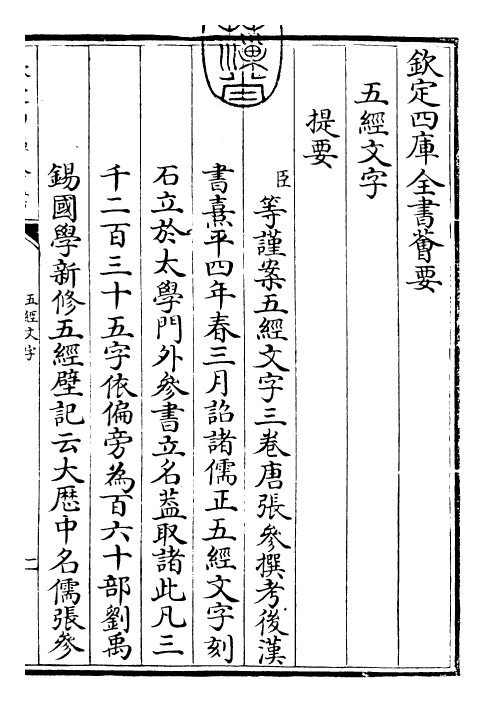 欽定四庫全書薈要
五經文字
提要
臣等謹案五經文字三卷唐張參撰考後漢
書熹平四年春三月詔諸儒正五經文字刻
石立於太學門外參書立名葢取諸此凡三
千二百三十五字依偏旁為百六十部劉禹
錫國學新修五經壁記云大厯中名儒張參
五經文字